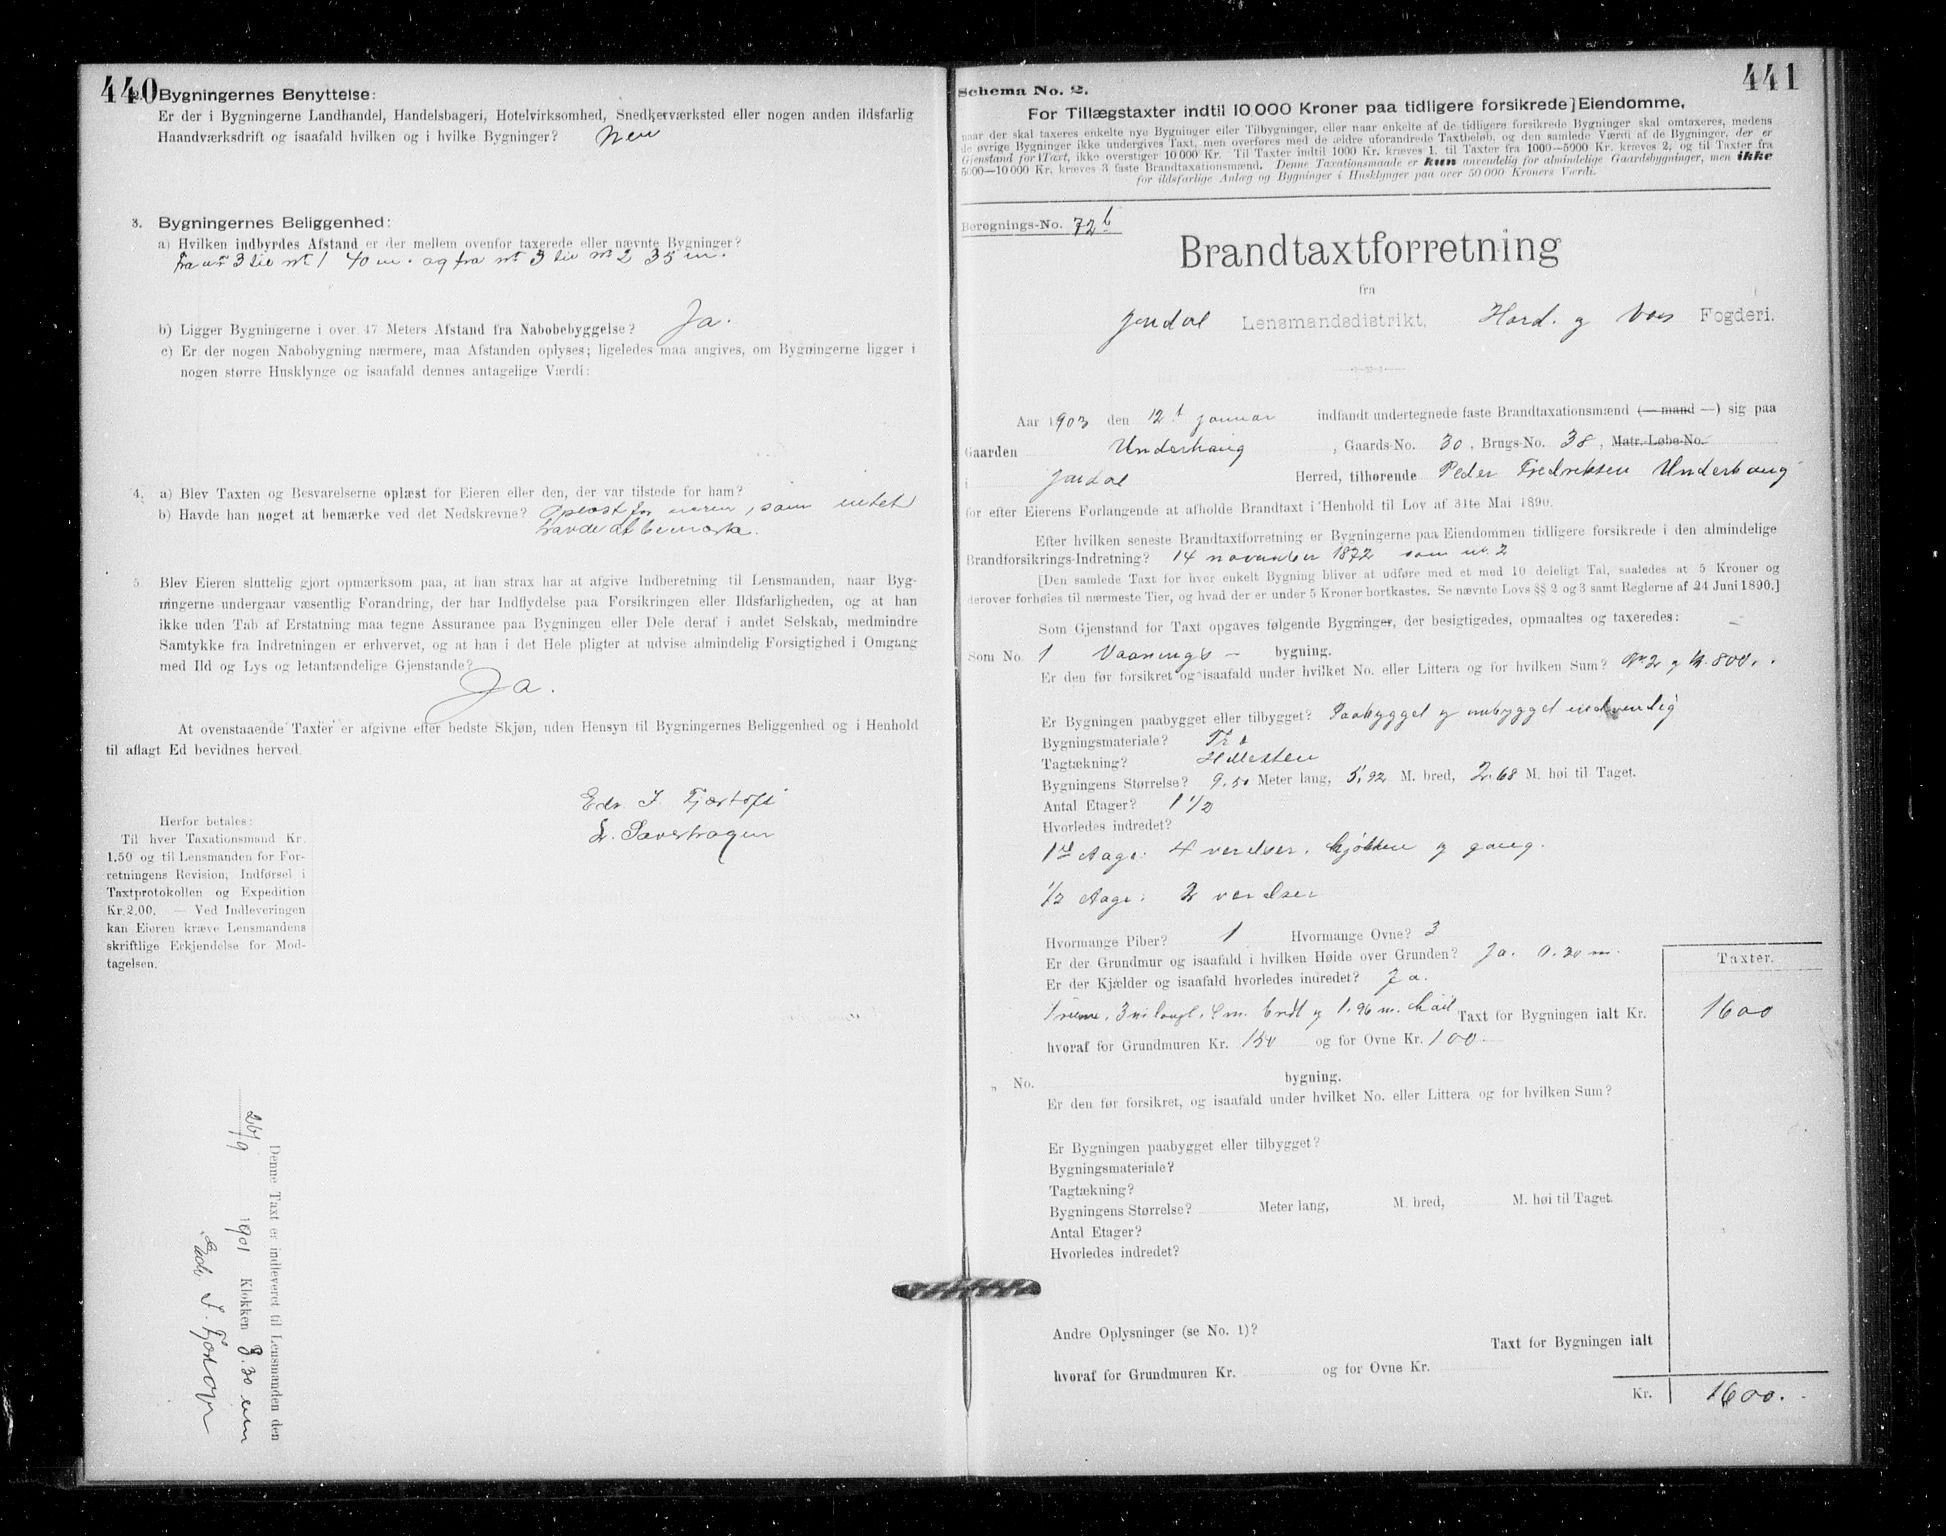 440
2. Bygningernes Benyttelse:
Er der i Bygningerne Landhandel, Handelsbageri, Hotelvirksomhed, Snedkerværksted eller nogen anden ildsfarlig
Haandværksdrift og isaafald hvilken og i hvilke Bygninger? Nei
3. Bygningernes Beliggenhed:
a) Hvilken indbyrdes Afstand er der mellem ovenfor taxerede eller nævnte Bygninger?
Fra nr 3 til nr 1 40 m. og fra nr 3 til nr 2 35 m.
b) Ligger Bygningerne i over 47 Meters Afstand fra Nabobebyggelse? Ja.
c) Er der nogen Nabobygning nærmere, maa Afstanden oplyses; ligeledes maa angives, om Bygningerne ligger i
nogen større Husklynge og isaafald dennes antagelige Værdi:
4. a) Blev Taxten og Besvarelserne oplæst for Eieren eller den, der var tilstede for ham?
b) Havde han noget at bemærke ved det Nedskrevne? Oplæst for eieren, som intet
havde at bemærke.
5. Blev Eieren sluttelig gjort opmærksom paa, at han strax har at afgive Indberetning til Lensmanden, naar Byg-
ningerne undergaar væsentlig Forandring, der har Indflydelse paa Forsikringen eller Ildsfarligheden, og at han
ikke uden Tab af Erstatning maa tegne Assurance paa Bygningen eller Dele deraf i andet Selskab, medmindre
Samtykke fra Indretningen er erhvervet, og at han i det Hele pligter at udvise almindelig Forsigtighed i Omgang
med Ild og Lys og letantændelige Gjenstande?
Ja.
At ovenstaaende Taxter er afgivne efter bedste Skjøn, uden Hensyn til Bygningernes Beliggenhed og i Henhold
til aflagt Ed bevidnes herved.
Herfor betales:
Til hver Taxationsmand Kr.
1.50 og til Lensmanden for For-
retningens Revision, Indførsel i
Taxtprotokollen og Expedition
Kr. 2.00. — Ved Indleveringen
kan Eieren kræve Lensmandens
skriftlige Erkjendelse for Mod-
tagelsen.
Denne Taxt er indleveret til Lensmanden den
26/9 1901 Klokken 8.30 em
441
Schema No. 2.
For Tillægstaxter indtil 10 000 Kroner paa tidligere forsikrede] Eiendomme,
naar der skal taxeres enkelte nye Bygninger eller Tilbygninger, eller naar enkelte af de tidligere forsikrede Bygninger skal omtaxeres, medens
de øvrige Bygninger ikke undergives Taxt, men overføres med de ældre uforandrede Taxtbeløb, og den samlede Værdi af de Bygninger, der er
Gjenstand for Taxt, ikke overstiger 10 000 Kr. Til Taxter indtil 1000 Kr. kræves 1, til Taxter fra 1000—5000 Kr. kræves 2, og til Taxter fra
5000—10 000 Kr. kræves 3 faste Brandtaxationsmænd. Denne Taxationsmaade er kun anvendelig for almindelige Gaardsbygninger, men ikke
for ildsfarlige Anlæg og Bygninger i Husklynger paa over 50 000 Kroners Værdi.
Beregnings-No. 72b
Brandtaxtforretning
fra
Jondal Lensmandsdistrikt, Hard. og Voss Fogderi.
Aar 1903 den 12t Januar indfandt undertegnede faste Brandtaxationsmænd (— mand —) sig paa
Gaarden Underhaug, Gaards-No. 30, Brugs-No. 38, Matr.-Løbe-No.
i Jondal Herred, tilhørende Peder Fredriksen Underhaug
for efter Eierens Forlangende at afholde Brandtaxt i Henhold til Lov af 31te Mai 1890.
Efter hvilken seneste Brandtaxtforretning er Bygningerne paa Eiendommen tidligere forsikrede i den almindelige
Brandforsikrings-Indretning? 14 november 1872 som nr. 2
[Den samlede Taxt for hver enkelt Bygning bliver at udføre med et med 10 deleligt Tal, saaledes at 5 Kroner og
derover forhøies til nærmeste Tier, og hvad der er under 5 Kroner bortkastes. Se nævnte Lovs §§ 2 og 3 samt Reglerne af 24 Juni 1890.]
Som Gjenstand for Taxt opgaves følgende Bygninger, der besigtigedes, opmaaltes og taxeredes:
Som No. 1 Vaanings- bygning.
Er den før forsikret og isaafald under hvilket No. eller Littera og for hvilken Sum? Nr 2 og kr. 800.
Er Bygningen paabygget eller tilbygget? Paabygget og ombygget indvendig
Bygningsmateriale? Træ
Tagtækning? Hellesten
Bygningens Størrelse? 9.50 Meter lang, 5,92 M. bred, 2.68 M. høi til Taget.
Antal Etager? 1 1/2
Hvorledes indredet?
1ste Etage: 4 værelser, kjøkken og gang.
1/2 Etage: 2 værelser
Hvormange Piber? 1 Hvormange Ovne? 3
Er der Grundmur og isaafald i hvilken Høide over Grunden? Ja. 0.30 m.
Er der Kjælder og isaafald hvorledes indredet? Ja.
Taxter.
3 m langt, m. bredt og 1.96 m. Taxt for Bygningen ialt Kr. 1600
hvoraf for Grundmuren Kr. 150 og for Ovne Kr. 100
„ No. bygning.
Er den før forsikret, og isaafald under hvilket No. eller Littera og for hvilken Sum?
Er Bygningen paabygget eller tilbygget?
Bygningsmateriale?
Tagtækning?
Bygningens Størrelse? Meter lang, M. bred, M. høi til Taget.
Antal Etager?
Hvorledes indredet?
Andre Oplysninger (se No. 1)?
Taxt for Bygningen ialt
hvoraf for Grundmuren Kr. og for Ovne Kr.
Kr. 1600.